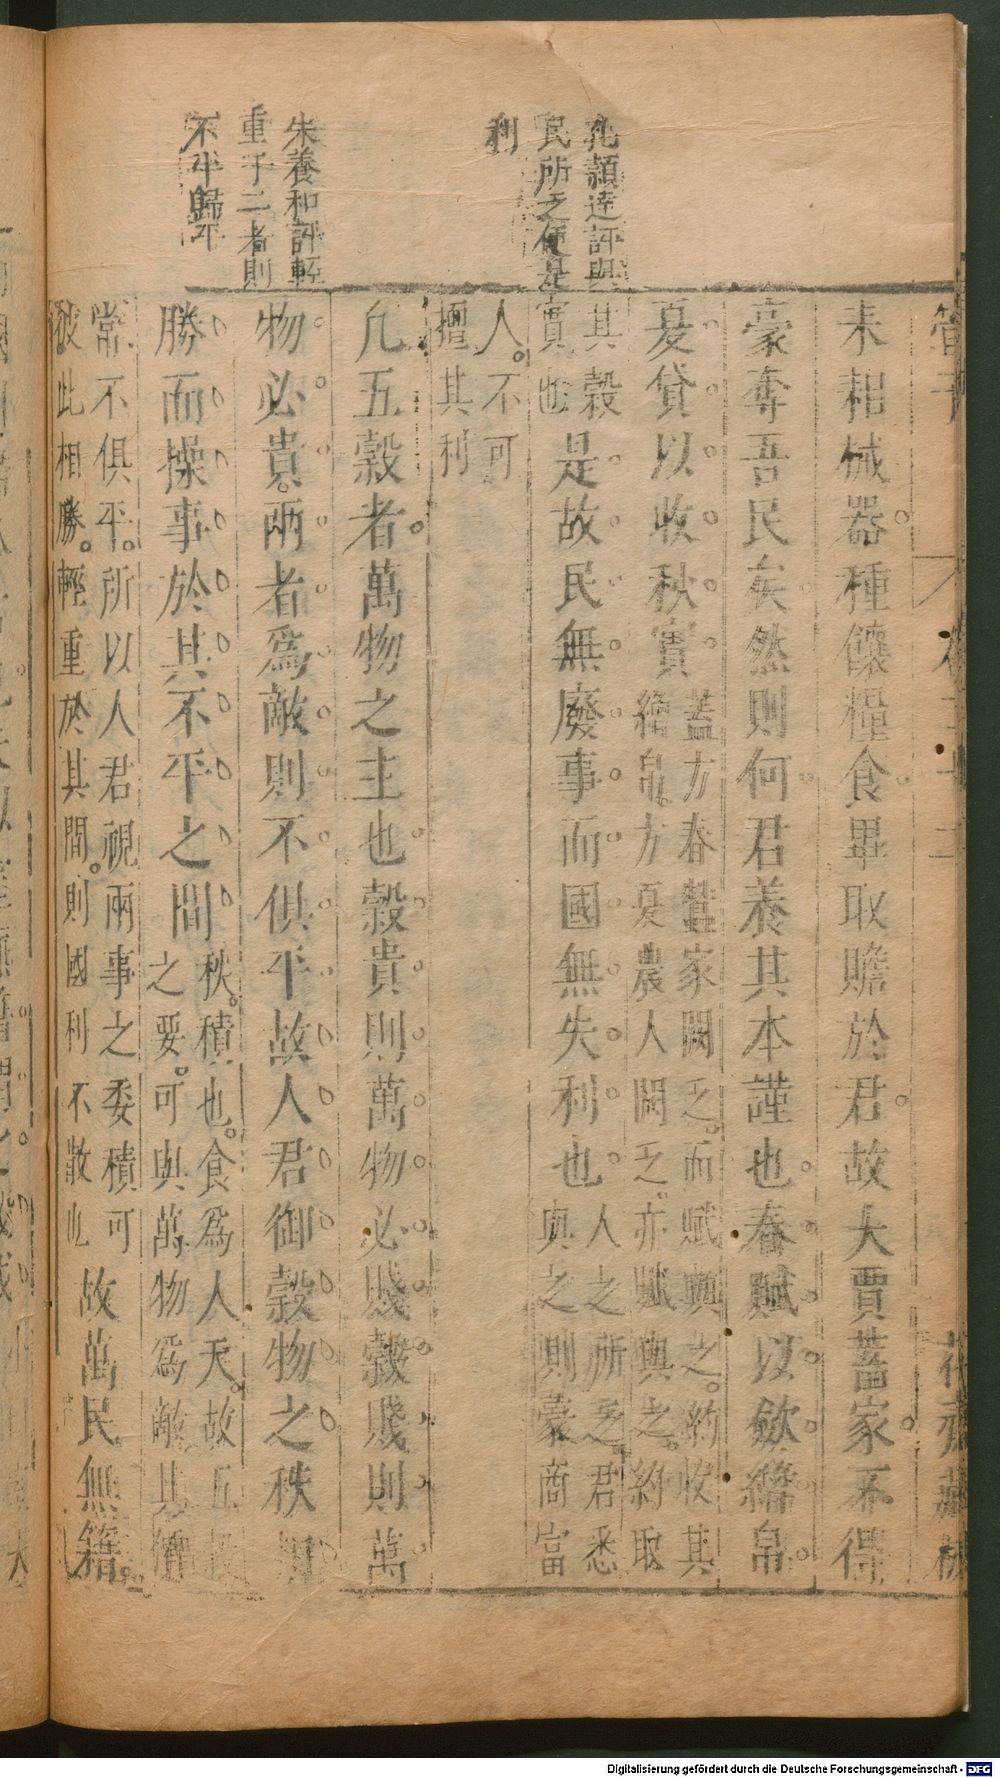 孔穎達評與
民所乏便是
利
朱養和評輕
重于二者則
不平歸平
管子
卷二十二
花齋藏板
耒耜械器種饟糧食畢取贍於君故大賈蓄家不得
豪奪吾民矣然則何君養其本謹也春賦以斂繒帛
夏貸以收秋實
蓋方春蠶家闕乏而賦與之約收其
繒帛方夏農人闕乏亦賦與之約取
其穀
實也
是故民無廢事而國無失利也
人之所乏君悉
與之則豪商富
人不可
擅其利
凡五穀者萬物之主也穀貴則萬物必賤穀賤則萬
物必貴兩者爲敵則不俱平故人君御穀物之秩相
勝而操事於其不平之間
秩積也食爲人天故五穀
之要可與萬物爲敵其價
常不俱平所以人君視兩事之委積可
彼此相勝輕重於其間則國利不散也
故萬民無籍
Digitalisierung gefördert durch die Deutsche Forschungsgemeinschaft - DFG